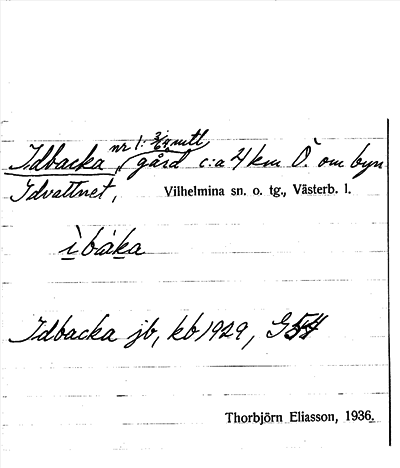 nr 1: 3/64 mtl,
Idbacka, gård c:a 4 km Ö. om byn
Idvattnet, Vilhelmina sn. o. tg., Västerb. l.
ìbàka
Idbacka jb, kb 1929, G54
Thorbjörn Eliasson, 1936.